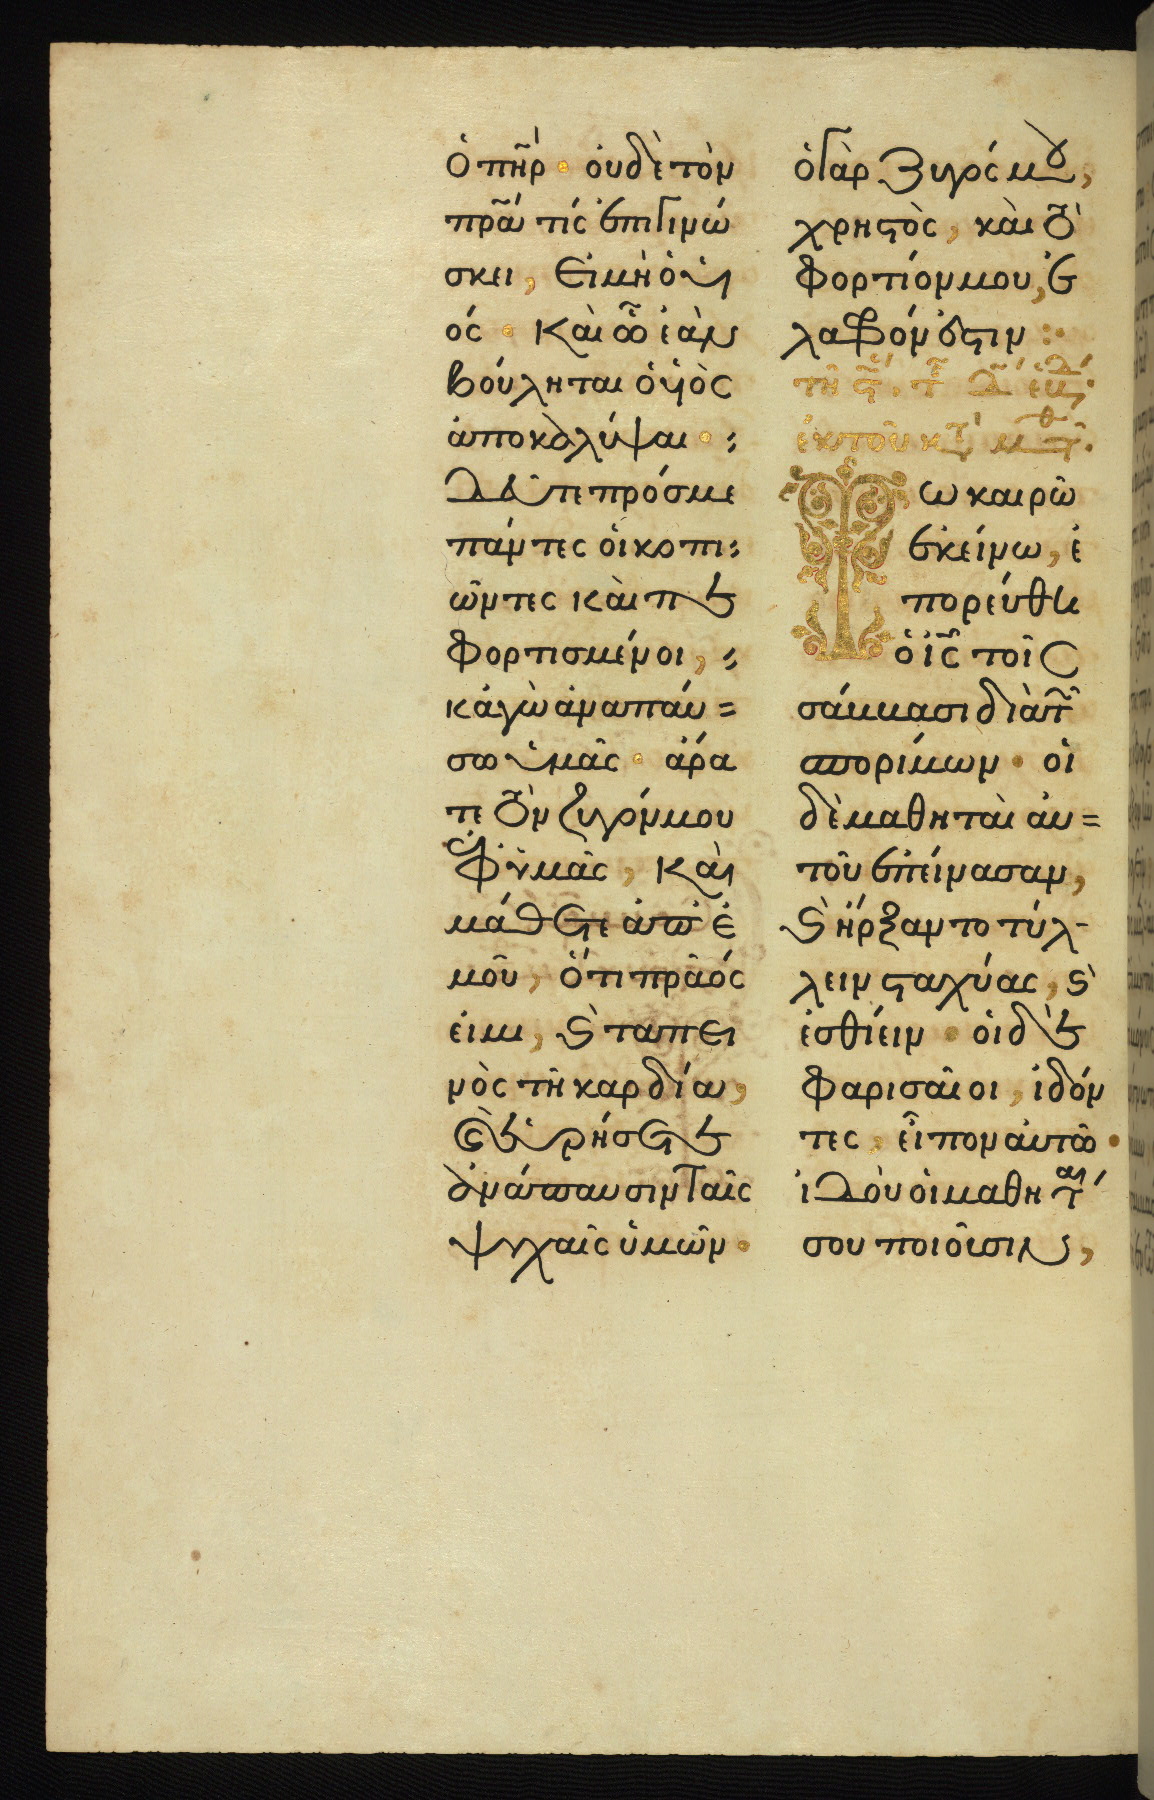 ὁ πῆρ · ὀυδὲ τὸν
πρᾶ τίς ἐπιγινώ
σκει, ει μὴ ὁ ὑι
ός · Κὰι ᾧ ἐὰν
βούληται ὁ ὑιὸς
ἀποκαλύψαι · :
Δεῦτε πρόσ με
πάντες ὁι κοπι:
ῶντες κὰι πε
φορτισμένοι, :
κἀγὼ ἀναπάυ=
σω ὑμᾶς · ἄρα
τε τὸν ζυγόν μου
ἐφ ὑμᾶς, Κὰι
μάθετε ἀπ ἐ
μοῦ, ὅτι πρᾶός
ἐιμι, ϗ ταπει
νὸς τῇ καρδία,
ϗ ἑυρήσετε
ἀνάπαυσιν ταῖς
ψυχαῖς ὑμῶν ·
ὁ γὰρ ζυγός μου,
χρηϛὸς, κὰι τὸ
φορτίον μου, ἐ
λαφρόν ἐϛιν :
ἐκ τοῦ κτ μτθ.
Τω καιρῶ
ἐκείνω, ἐ
πορέυθη
ὁ ἰς τοῖς
σάββασι διὰ τ
σπορίμων · ὁι
δὲ μαθητὰι ἀυ=
τοῦ ἐπείνασαν,
ϗ ἤρξαντο τίλ-
λειν ϛαχύας, ϗ
ἐσθίειν · ὁι δὲ
φαρισαῖοι, ἰδόν
τες, εἶπον ἀυτῶ ·
ἰδὸυ ὁι μαθηταί
σου ποιοῦσιν,